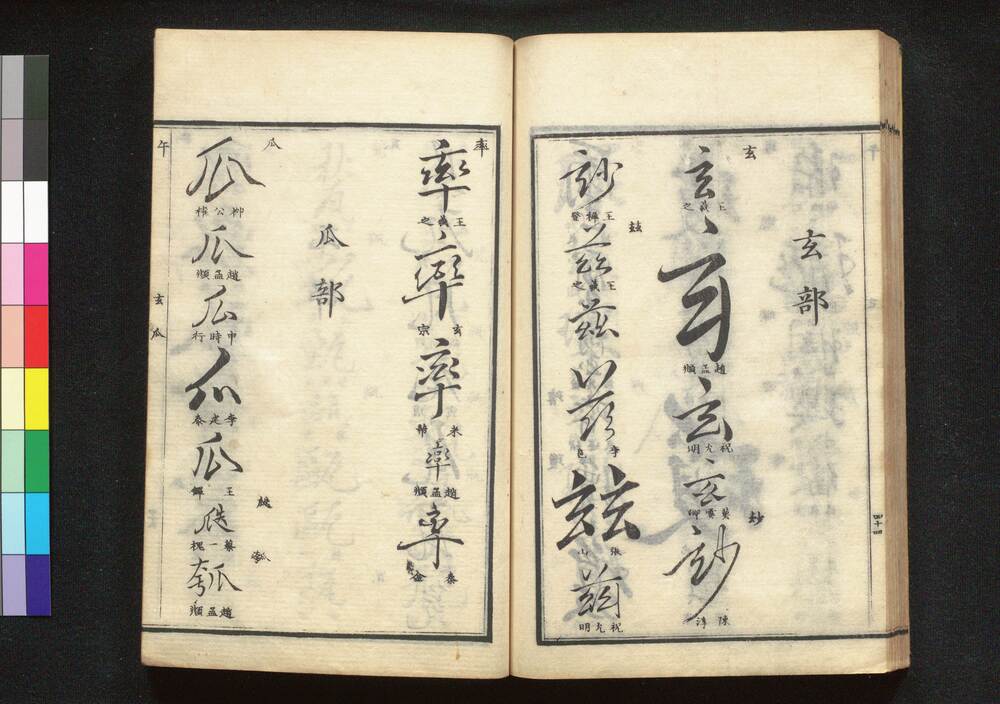 玄部
玄
玄
王羲之
玄
趙孟頫
玄
祝允明
玄
莫雲卿
玅
玅
陳淳
玅
王穉登
玆
玆
王羲之
玆
玆
李邕
玆
張山
玆
祝允明
四十四
率
率
王羲之
率
玄宗
率
米芾
率
趙孟頫
率
泰金
瓜部
瓜
瓜
柳公權
瓜
趙孟頫
瓜
申時行
瓜
李定泰
瓜
王鐸
瓞
瓞
蔡一槐
瓠
瓠
趙孟頫
午
玄瓜